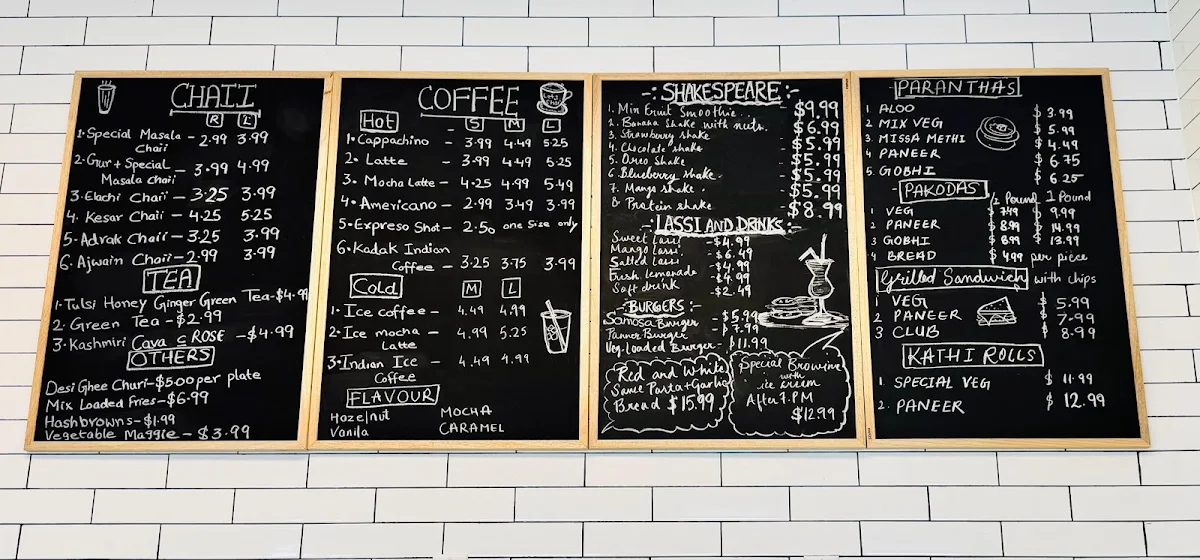 CHAII
R L
1. Special Masala Chaii - 2.99 3.99
2. Gur + Special Masala Chaii - 3.99 4.99
3. Elachi Chaii - 3.25 3.99
4. Kesar Chaii - 4.25 5.25
5. Adrak Chaii - 3.25 3.99
6. Ajwain Chaii - 2.99 3.99
TEA
1. Tulsi Honey Ginger Green Tea - $4.99
2. Green Tea - $2.99
3. Kashmiri Cava c ROSE - $4.99
OTHERS
Desi Ghee Churi - $5.00 per plate
Mix Loaded Fries - $6.99
Hashbrowns - $1.99
Vegetable Maggie - $3.99
COFFEE
Hot - S M L
1. Cappachino - 3.99 4.49 5.25
2. Latte - 3.99 4.49 5.25
3. Mocha Latte - 4.25 4.99 5.49
4. Americano - 2.99 3.49 3.99
5. Expreso Shot - 2.50 one size only
6. Kadak Indian
Coffee - 3.25 3.75 3.99
Cold M L
1. Ice coffee - 4.49 4.99
2. Ice mocha Latte - 4.99 5.25
3. Indian Ice Coffee - 4.49 4.99
FLAVOUR
Hazelnut MOCHA
Vanila CARAMEL
-: SHAKESPEARE :-
1. Mix Fruit Smoothie. $9.99
2. Banana Shake with nuts. $6.99
3. Strawberry shake $5.99
4. Chocolate shake $5.99
5. Oreo Shake $5.99
6. Blueberry shake. $5.99
7. Mango shake. $5.99
8. Protein shake $8.99
-: LASSI AND DRINKS :-
Sweet Lassi - $4.99
Mango Lassi - $6.49
Salted Lassi - $4.99
Fresh lemonade - $4.99
Soft drink - $2.49
-: BURGERS :-
Samosa Burger - $5.99
Panner Burger - $7.99
Veg. Loaded Burger - $11.99
Red and White
Sauce Pasta + Garlic
Bread $15.99
Special Brownie
with
ice cream
After 7 PM
$12.99
PARANTHAS
1 ALOO $3.99
2 MIX VEG $5.99
3 MISSA METHI $4.49
4 PANEER $6.75
5. GOBHI $6.25
- PAKODAS 1/2 Pound 1 Pound
1 VEG $7.49 9.99
2 PANEER $8.99 14.99
3 GOBHI $8.99 13.99
4 BREAD $4.99 per piece
Grilled Sandwich with chips
1 VEG $5.99
2 PANEER $7.99
3 CLUB $8.99
KATHI ROLLS
1. SPECIAL VEG $11.99
2. PANEER $12.99